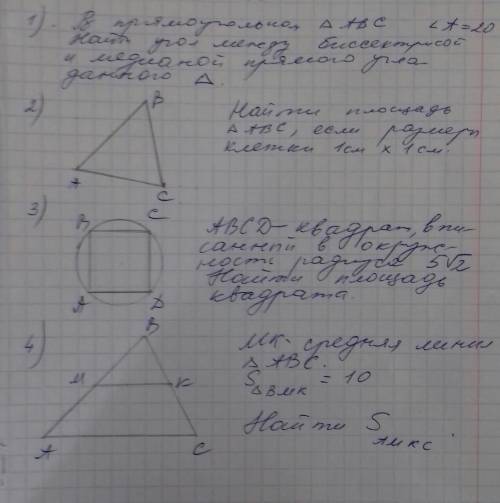 1). В прямоугольном △ ABC ∠A=20
Найти угол между биссектрисой
и медианой прямого угла
данного △.
2)
B
A
C
Найти площадь
△ABC, если размеры
клетки 1см x 1см.
3)
B
C
A
D
ABCD - квадрат, впи-
санный в окруж-
ность радиуса 5√2
Найти площадь
квадрата.
4)
B
M
K
A
C
MK - средняя линия
△ ABC.
S△BMK = 10
Найти S AMKC.